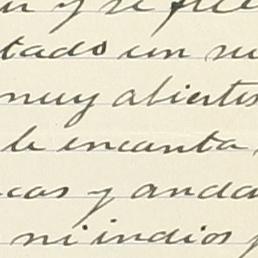 y se
tado un
muy abiertos
le encanta
cas y anda
ni indios